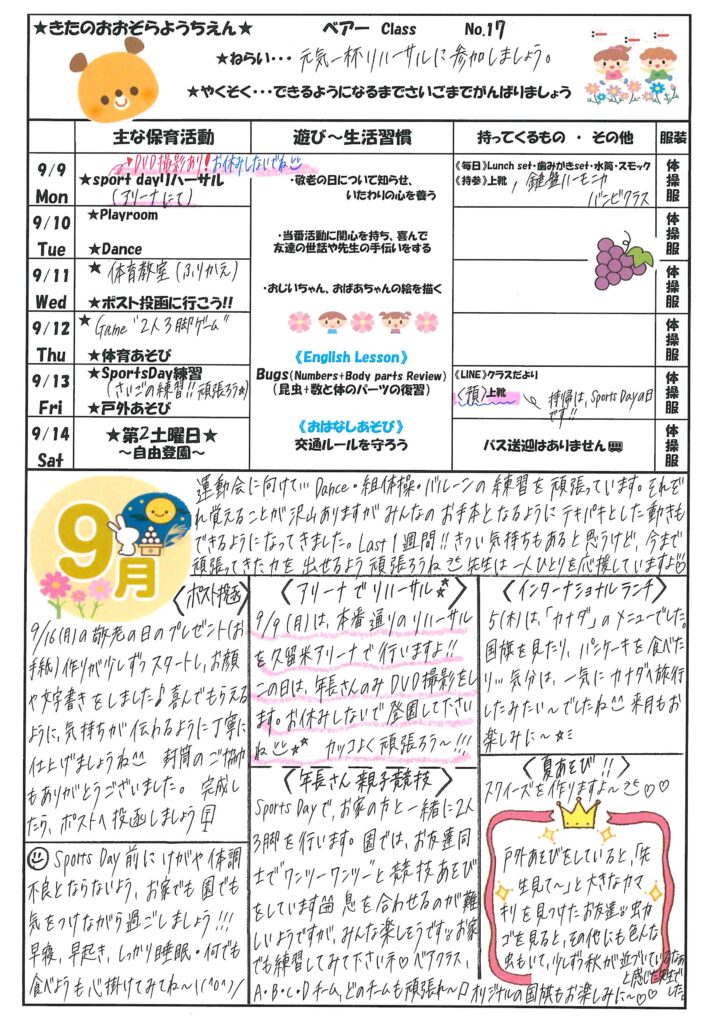 ★きたのおおぞらようちえん★
ベアー Class No.17
★ねらい・・・ 元気一杯リハーサルに参加しましょう。
★やくそく・・・できるようになるまでさいごまでがんばりましょう
主な保育活動
遊び～生活習慣
持ってくるもの ・ その他
服装
9/9
Mon
DVD撮影あり!お休みしないでね
★sport dayリハーサル
(アリーナにて)
・敬老の日について知らせ、
いたわりの心を養う
《毎日》Lunch set・歯みがきset・水筒・スモック
《持参》上靴 , 鍵盤ハーモニカ
バンビクラス
体操服
9/10
Tue
★Playroom
★Dance
・当番活動に関心を持ち、喜んで
友達の世話や先生の手伝いをする
体操服
9/11
Wed
★体育教室(ふりかえ)
★ポスト投函に行こう!!
・おじいちゃん、おばあちゃんの絵を描く
体操服
9/12
Thu
★Game "2人3脚ゲーム"
★体育あそび
《English Lesson》
体操服
9/13
Fri
★SportsDay練習
(さいごの練習!!頑張ろう★)
★戸外あそび
Bugs(Numbers+Body parts Review)
(昆虫+数と体のパーツの復習)
《LINE》クラスだより
(預)上靴
持帰は、Sports Dayの日です!!
体操服
9/14
Sat
★第2土曜日★
～自由登園～
《おはなしあそび》
交通ルールを守ろう
バス送迎はありません
体操服
9月
運動会に向けて… Dance・組体操・バルーンの練習を頑張っています。それぞ
れ覚えることが沢山ありますがみんなのお手本となるようにテキパキとした動きも
できるようになってきました。Last 1週間!!きつい気持ちもあると思うけど、今まで
頑張ってきた力を出せるよう頑張ろうね 先生は一人ひとりを応援していますよ♡
〈ポスト投函〉
9/16(月)の敬老の日のプレゼント(お
手紙)作りが少しずつスタートし、お顔
や文字書きをしました♪喜んでもらえる
ように、気持ちが伝わるように丁寧に
仕上げましょうね 封筒のご協力
もありがとうございました。 完成し
たら、ポストへ投函しましょう
Sports Day前にけがや体調
不良とならないよう、お家でも園でも
気をつけながら過ごしましょう!!!
早寝、早起き、しっかり睡眠・何でも
食べようも心掛けてみてね～\(^o^)/
〈アリーナでリハーサル〉
9/9(月)は、本番通りのリハーサル
を久留米アリーナで行いますよ!!
この日は、年長さんのみDVD撮影をし
ます。お休みしないで登園して下さい
ね カッコよく頑張ろう～!!!
〈年長さん 親子競技〉
Sports Dayで、お家の方と一緒に2人
3脚を行います。園では、お友達同
士でワンツーワンツーと競技あそび
をしています 息を合わせるのが難
しいようですが、みんな楽しそうです お家
でも練習してみて下さいネ♡ベアクラス、
A・B・C・Dチーム、どのチームも頑張れ～ オリジナルの国旗もお楽しみに～♡♡
〈インターナショナルランチ〉
5(木)は、「カナダ」のメニューでした。
国旗を見たり、パンケーキを食べた
り… 気分は、一気にカナダへ旅行
したみたい～でしたね 来月もお
楽しみに～
〈夏あそび!!〉
スクイーズを作りますよ～♡♡
戸外あそびをしていると、「先
生見て～」と大きなカマ
キリを見つけたお友達 虫カ
ゴを見ると、その他にも色んな
虫もいて、少しずつ秋が近づいているなぁ
と感じた
でした。